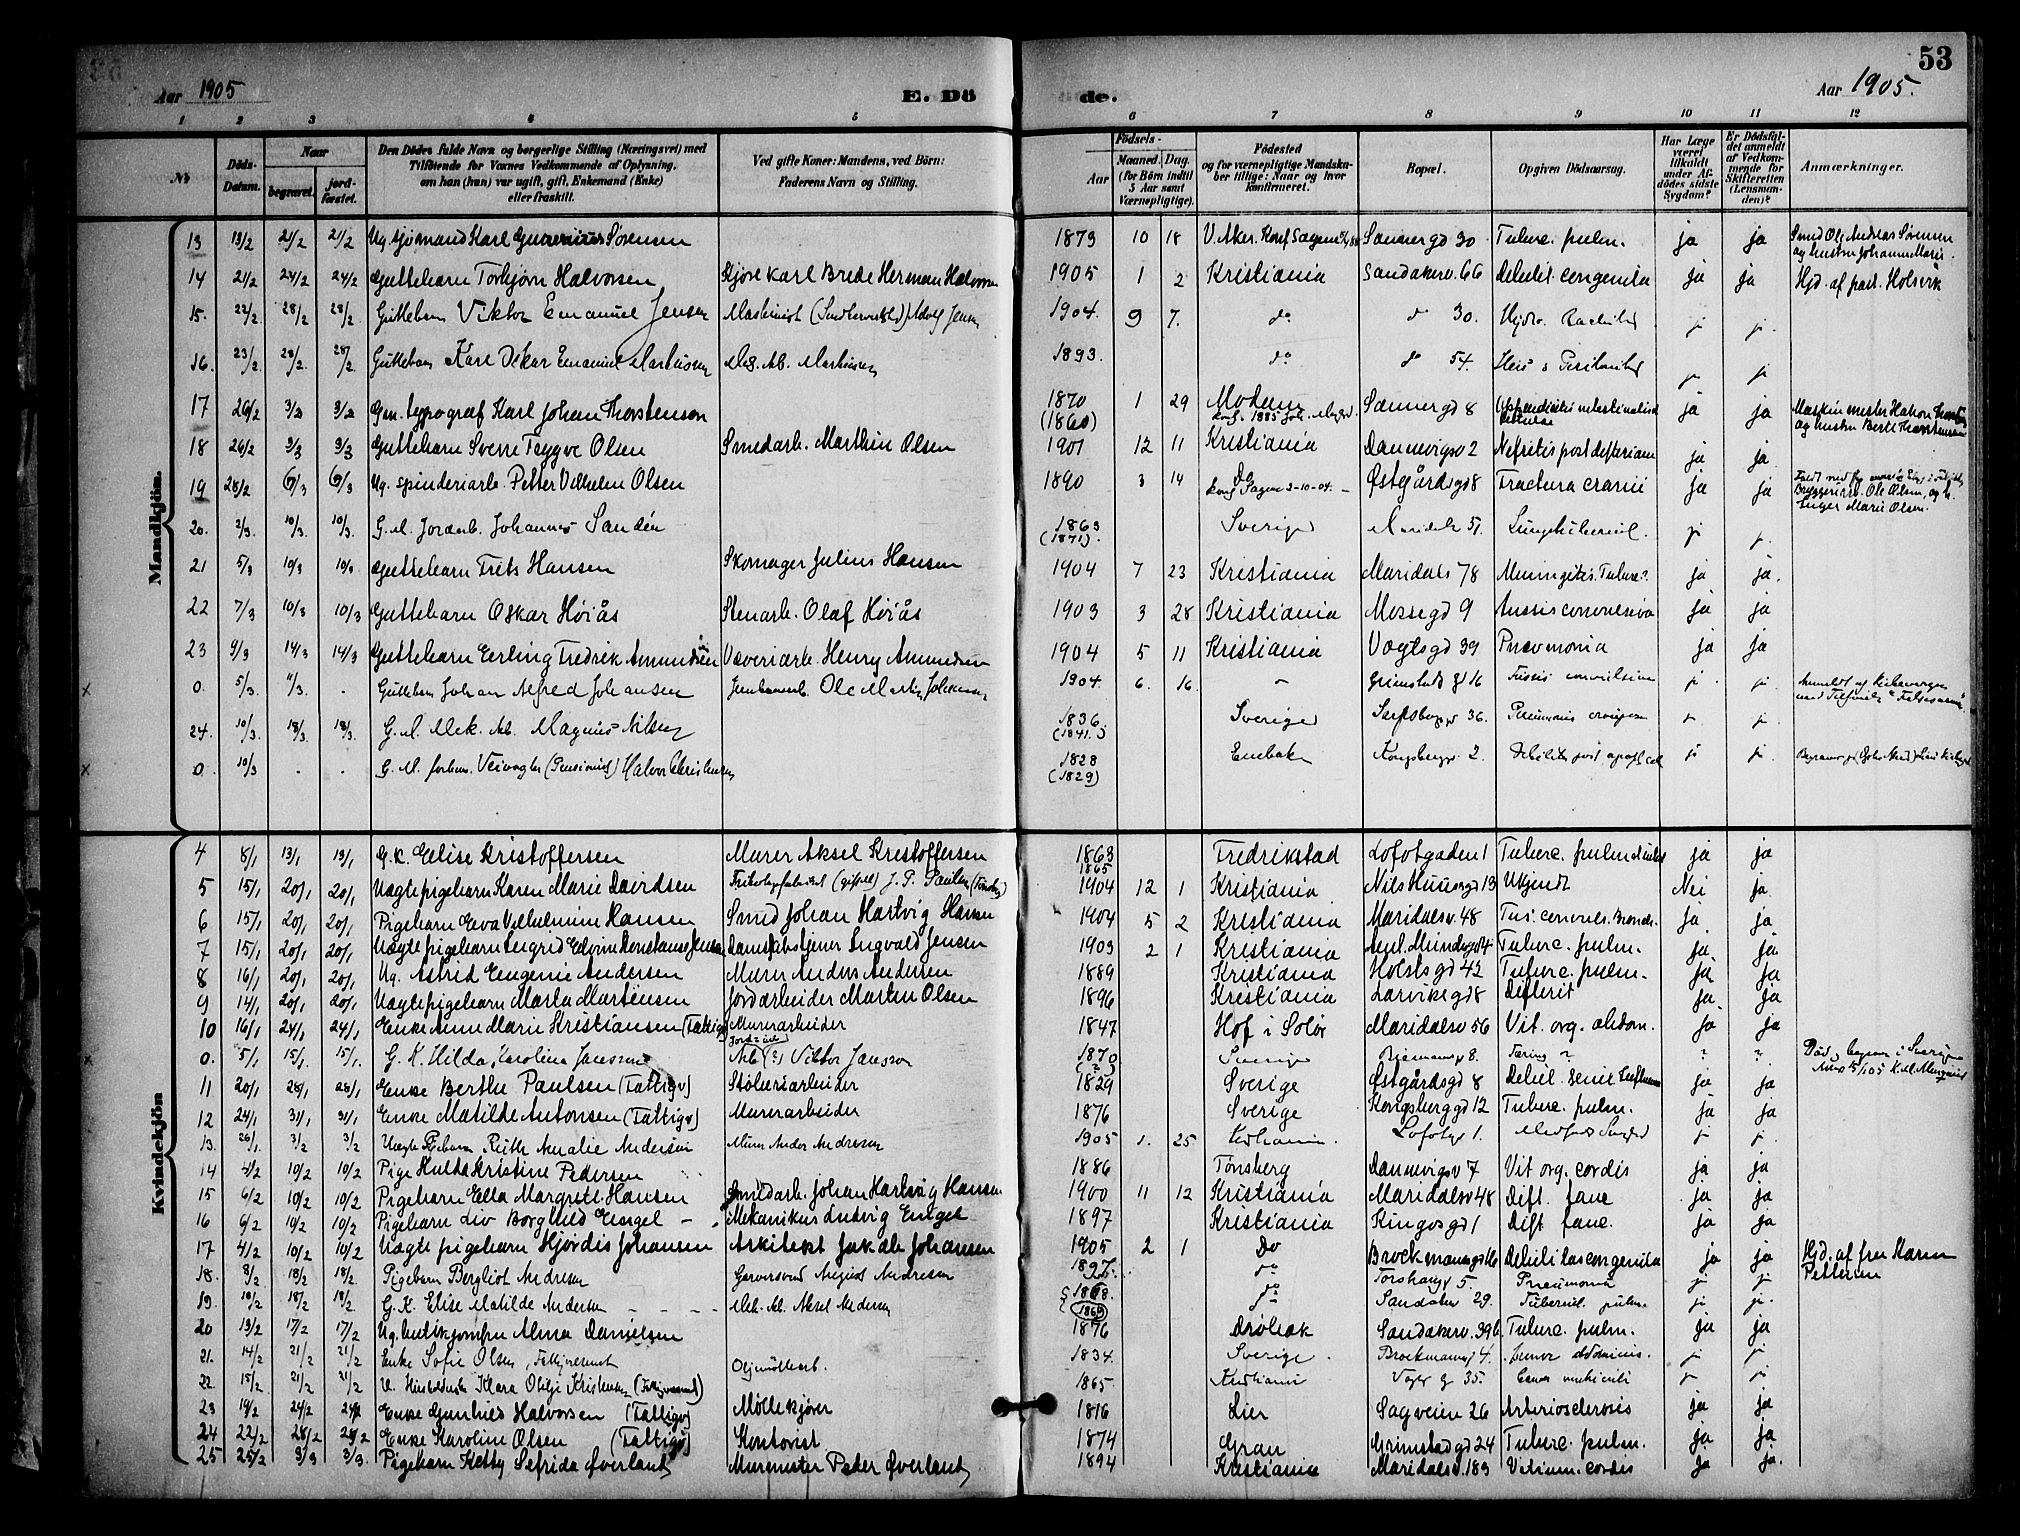 53
Aar 1905
E. Dö
de.
Aar 1905.
1 2 3 4 5 6 7 8 9 10 11 12
№
Döds-Datum.
Naar
begravet.
jordfæstet.
Den Dödes fulde Navn og borgerlige Stilling (Næringsvei) med
Tilföiende for Voxnes Vedkommende af Oplysning,
om han (hun) var ugift, gift, Enkemand (Enke)
eller fraskilt.
Ved gifte Koner: Mandens, ved Börn:
Faderens Navn og Stilling.
Födsels-
Aar
Maaned. Dag.
(for Børn indtil
5 Aar samt
Værnepligtige).
Födested
og for værnepligtige Mandska-
ber tillige: Naar og hvor
konfirmeret.
Bopæl.
Opgiven Dödsaarsag.
Har Læge
været
tilkaldt
under Af-
dödes sidste
Sygdom?
Er Dödsfal-
det anmeldt
af Vedkom-
mende for
Skifteretten
(Lensman-
den)?
Anmærkninger.
Mandkjön.
13 13/2 21/2 21/2 Ug. sjømand Karl Sørensen 1873 10 18 V. Aker. Sannergd 30 Tuberc. pulm. ja ja Smed Ole Andreas Sørensen
og hustru Johanne Marie.
14 21/2 24/2 24/2 Guttebarn Torbjørn Halvorsen Kjørekarl Brede Herman Halvorsen 1905 1 2 Kristiania Sandakerv. 66 Debilit. congenita ja ja Hjd. af past. Holsvik
15. 22/2 28/2 28/2 Guttebarn Viktor Emanuel Jensen Maskinist Adolf Jensen 1904. 9 7. do do 30. ja ja
16. 23/2 28/2 28/2 Guttebarn Karl Oskar Emanuel Martinsen Mag. Ab. Martinsen 1893. do do 54. ja ja
17 26/2 3/3 3/3 Gm. typograf Karl Johan Thorstenson 1870
(1860) 1 29 Sannergd 8 ja ja
18 26/2 3/3 3/3 Guttebarn Sverre Trygve Olsen Smedarb. Marthin Olsen 1901 12 11 Kristiania Dannevigsv 2 Nefritis post defteriam ja ja
19 28/2 6/3 6/3 Ug. spinderiarb. Petter Vilhelm Olsen 1890 3 14 Do
konf. Sagene 2-10-04. Østgårdsgd 8 Fractura cranii ja ja
Bryggeriarb. Ole Olsen, og h.
Inger Marie Olsen.
20. 2/3. 10/3. 10/3. G. M. Jordarb. Johannes Sandén 1863
(1871). Sverige Maridalsv 51. Lungetubercul. ja ja.
21 5/3 10/3 10/3 Guttebarn Frits Hansen Skomager Julius Hansen 1904 7 23 Kristiania Maridalsv 78 Meningitis. Tuberc. ja ja.
22 7/3 10/3 10/3 Guttebarn Oskar Høiås Stenarb. Olaf Høiås 1903 3 28 Kristiania Mossegd 9 Tussis convulsiva ja ja
23 9/3 14/3 14/3 Guttebarn Erling Fredrik Amundsen Væveriarb. Henry Amundsen 1904 5 11 Kristiania Vogtsgd 39 Pnevmonia ja ja
x 0. 5/3. 11/3. - Guttebarn Johan Alfred Johansen Ole Martin Johansen 1904. 6. 16. - Grimstads gd 16 Tussis convulsiva ja ja.
24. 10/3. 18/3. 18/3. G. M. Mek. Arb. Magnus Nilsen 1836.
(1841.) Sverige Sarpsborggd 36. Pneumonia crouposa ja
x 0. 10/3 . . G. M. forhenv. Veivogter (Pensionist) Halvor Christensen 1828
(1829) Enebak Kongsberggd 2. Debilitas post apoplex. ja ja.
Kvindekjön
4 8/1 13/1 13/1 G. K. Elise Kristoffersen Murer Aksel Kristoffersen 1863
1865 Fredrikstad Lofotgaden 1 Tuberc. pulm ja ja
5 15/1 20/1 20/1 Uægte pigebarn Karen Marie Davidsen Trikotagefabrikant (gift) J. P. Paulsen (Tønsberg) 1904 12 1 Kristiania Nils Huusgd 13 Ukjendt Nei ja
6 15/1 20/1 20/1 Pigebarn Eva Vilhelmine Hansen Smed Johan Hartvig Hansen 1904 5 2 Kristiania Maridalsv. 48 Tus. convuls. Bronch. ja ja
7 15/1 20/1 20/1 Uægte pigebarn Ingrid Edvine Konstanse Jensen Ingvald Jensen 1903 2 1 Kristiania Tuberc. pulm. ja ja
8 16/1 20/1 20/1 Ug. Astrid Eugenie Andersen Murer Anders Andersen 1889 Kristiania Holstsgd 42 Tuberc. pulm. ja ja
9 14/1 20/1 20/1 Uægte pigebarn Marta Martinsen Jordarbeider Martin Olsen 1896 Kristiania Larviksgd 8 Difterit ja ja
10 16/1 24/1 24/1 Enke Anne Marie Kristiansen (Fattigv) Murerarbeider 1847 Hof i Solør Maridalsv 56 Vit. org. abdom. ja ja
x 0. 5/1 15/1. 15/1. G. K. Hilda Karolina Jansson Arb (?) Viktor Jansson 1870
(?) Sverige Tæring ? ? ? Død, begrav. i Sverige
11 20/1 28/1 28/1 Enke Berthe Paulsen (Fattigv) Støberiarbeider 1829 Sverige Østgårdsgd 8 Debil. senil ja ja
12 24/1 31/1 31/1 Enke Matilde Antonsen (Fattigv) Murerarbeider 1876 Sverige Kongsberggd 12 Tuberc. pulm. ja ja
13. 26/1. 3/2 3/2 Uægte Pigebarn Ruth Amalie Andersen 1905 1. 25 Kristiania. Lofotgd 1. ja ja.
14 4/2 10/2 10/2 Pige Hulda Kristine Pedersen 1886 Tønsberg Dannevigsv 7 Vit org. cordis ja ja
15 6/2 10/2 10/2 Pigebarn Ella Margrete Hansen Smedarb. Johan Hartvig Hansen 1900 11 12 Kristiania Maridalsv 48 Dift. fauc ja ja
16 6/2 10/2 10/2 Pigebarn Liv Borghild Engel - Mekanikus Ludvig Engel 1897 Kristiania Kingosgd 1 Dift fauc. ja ja
17 4/2 10/2 10/2 Uægte pigebarn Hjørdis Johansen Arkitekt Jakob Johansen 1905 2 1 Do Brockmannsgd 16 Debilitas congenita ja ja Hjd. af fru Karen
Pettersen
18. 8/2 18/2 18/2. Pigebarn Bergliot Andresen Garversvend August Andresen 1897. do Torshauggd 5. Pneumonia ja ja
19. 10/2 18/2 18/2. G. K. Elise Matilde Andersen - - - - Mek. Ab. Aksel Andersen 1868.
1869 do Sandakerv 29. Tubercul. pulm. ja ja.
20 13/2 17/2 17/2 Ug. butikjomfru Alma Danielsen 1876 Drøbak Sandakerv. 39b. Tuberc. pulm. ja ja
21. 14/2 21/2 21/2 Enke Sofie Olsen, Fattigvæsenet Oljemøllearb. 1834. Sverige. Brockmannsgd 4. Tumor abdominis. ja ja
22. 15/2 21/2 21/2 U. Husholderske Klara Otilje Kristensen (Fattigvæsenet) 1865. Kristiania Vogts g 35. Cancer ventriculi ja ja
23 19/2 24/2 24/2 Enke Gunhild Halvorsen (Fattigv) Møllekjører 1816 Lier Sagveien 26 Arteriosclerosis ja ja
24 22/2 28/2 28/2 Enke Karoline Olsen (Fattigv) Kontorist 1874 Gran Grimstadgd 24 Tuberc. pulm. ja ja
25 25/2 3/3 3/3. Pigebarn Ketty Sefrida Øverland Murmester Peder Øverland 1894 Kristiania Maridalsv. 183 Vitium cordis ja ja.